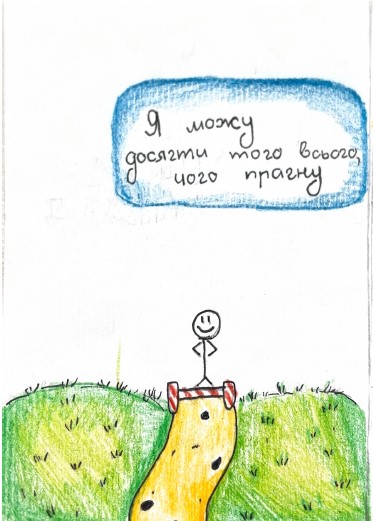 Я можу
досягти того всього,
чого прагну